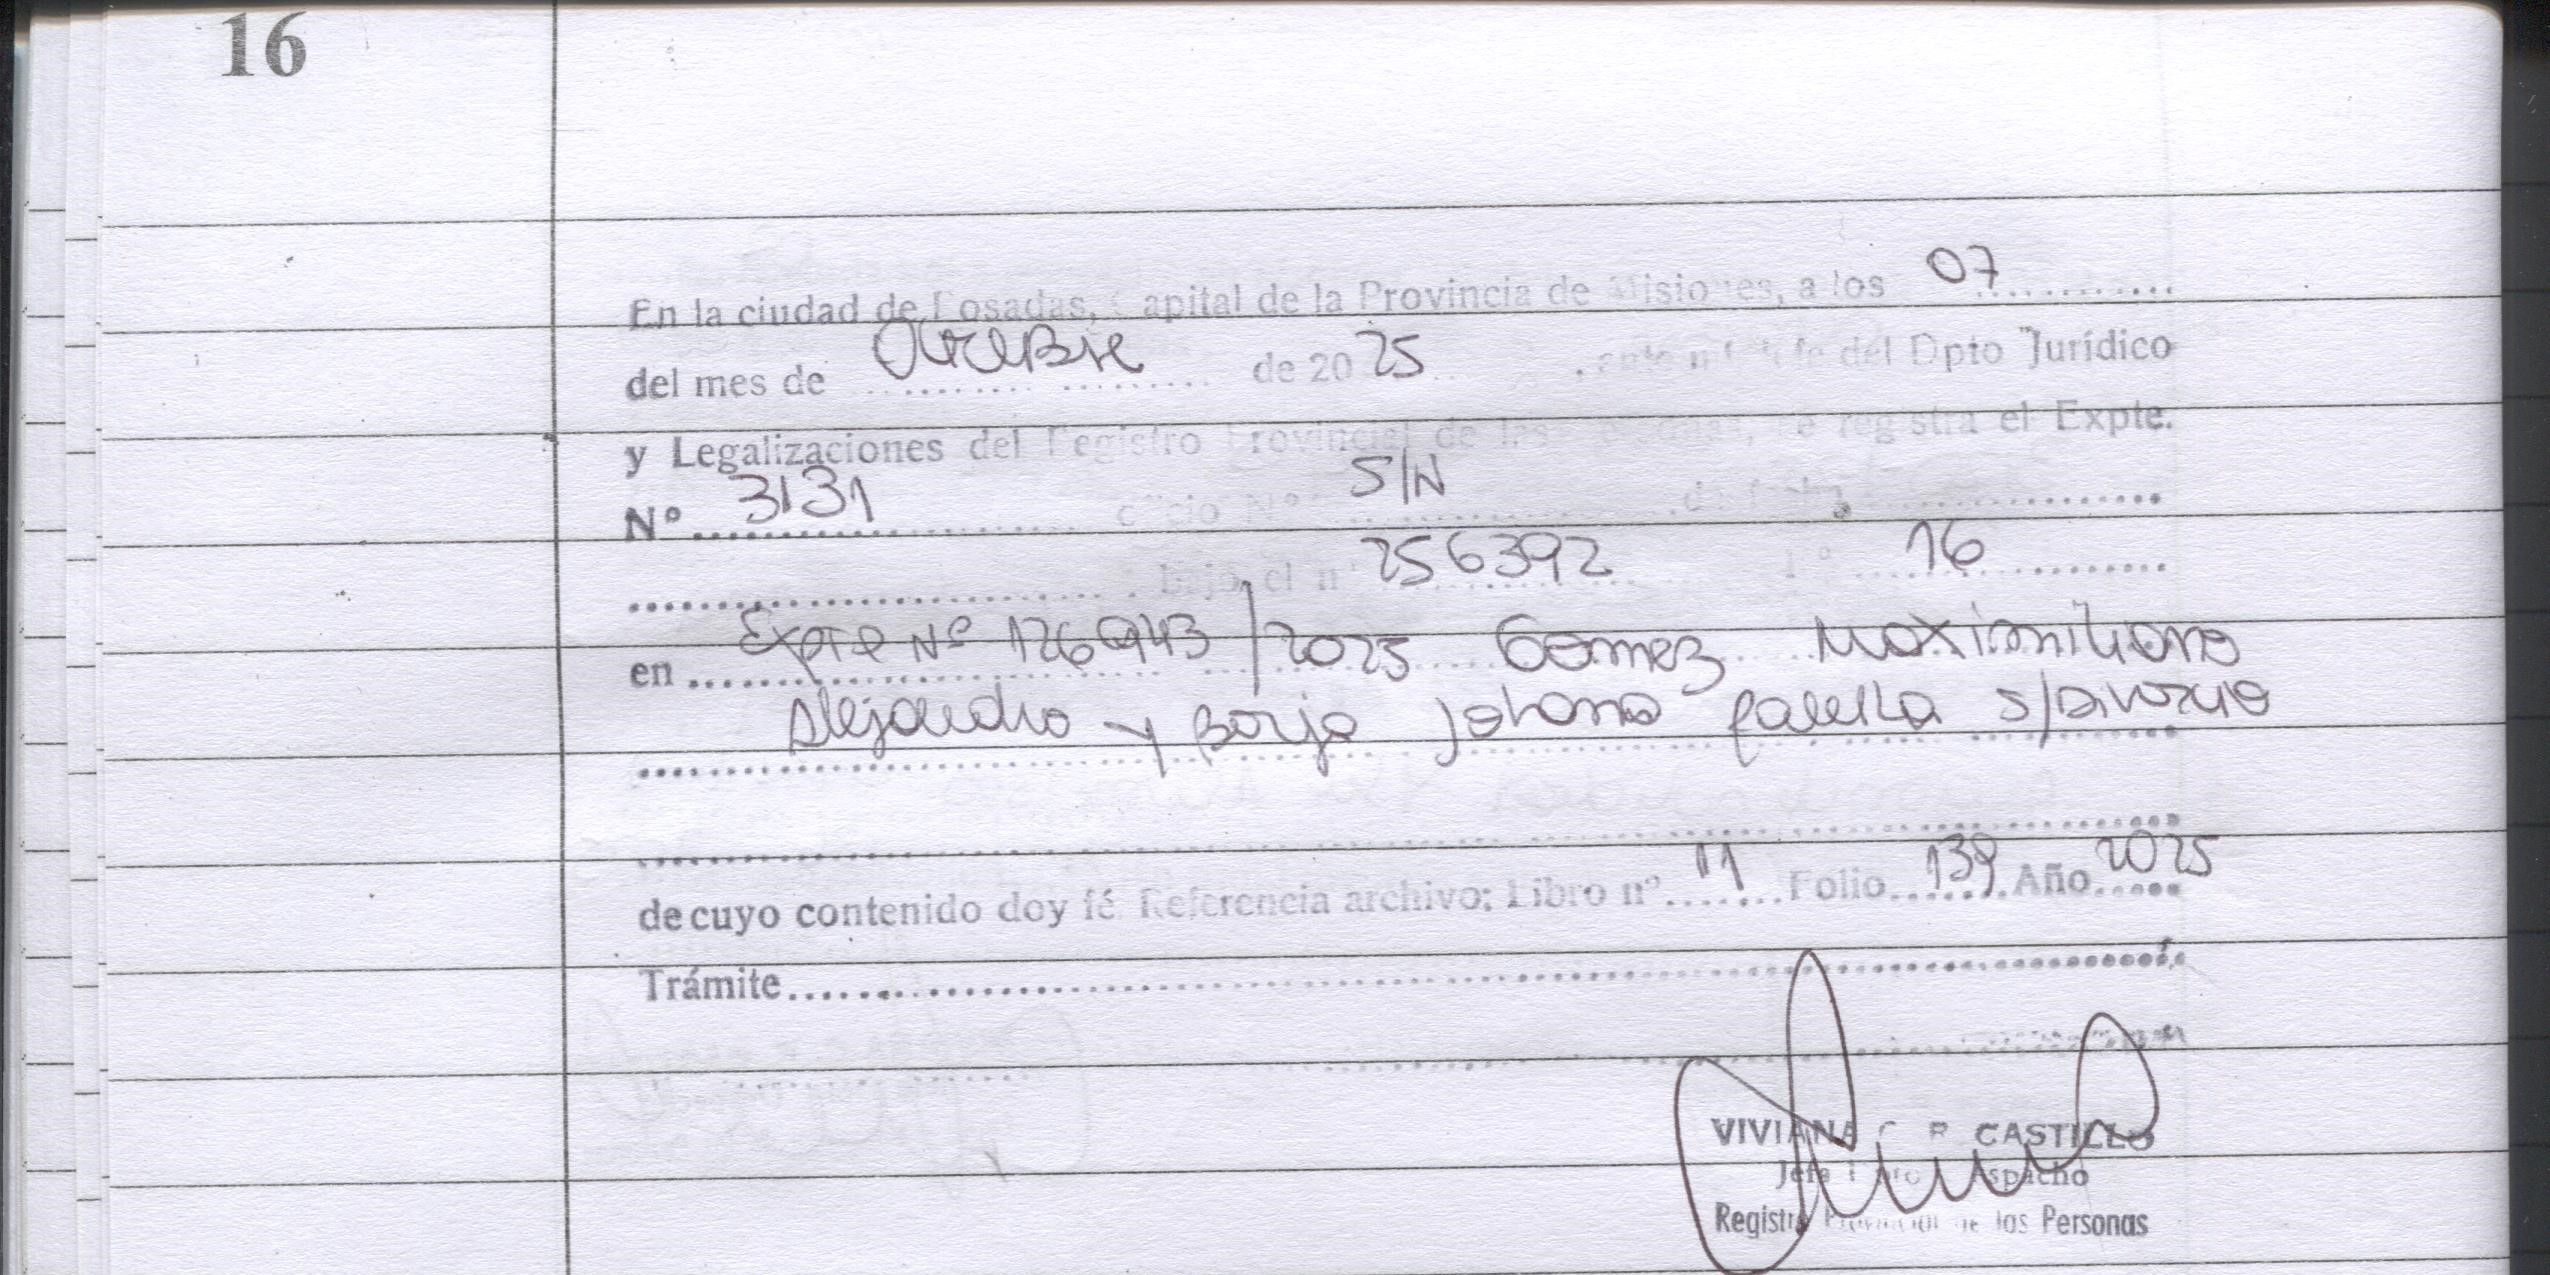 16
En la ciudad de Posadas, Capital de la Provincia de Misiones, a los 07
del mes de Octubre de 2025, ante el Jefe del Dpto Jurídico
y Legalizaciones del Registro Provincial de las Personas, se registra el Expte.
Nº 3131 oficio Nº S/N de fecha
bajo el nº 256392 Fº 16
en Expte Nº /2025 Gomez Maximiliano
Alejandro y Borja Johana S/Divorcio
de cuyo contenido doy fé. Referencia archivo: Libro nº 11 Folio 139 Año 2025
Trámite
VIVIANA CASTILLO
Jefa Dpto Despacho
Registro Provincial de las Personas